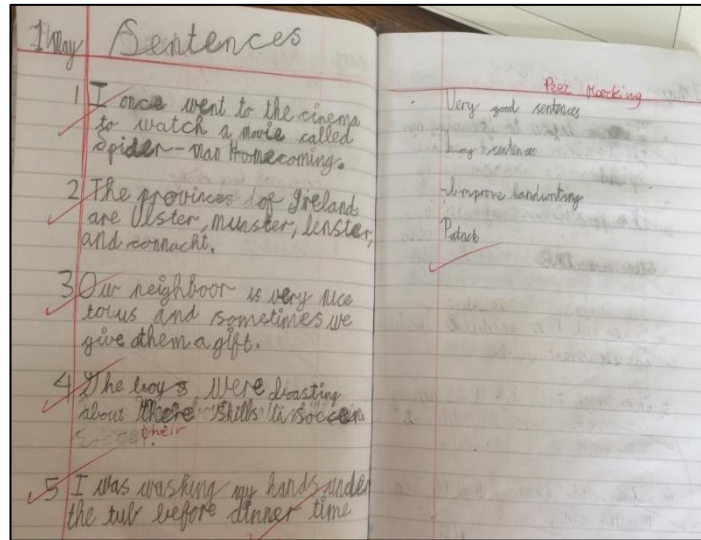 1 May Sentences
1 I once went to the cinema
to watch a movie called
Spider-man Homecoming.
2 The provinces of Ireland
are Ulster, munster, lenster,
and connacht.
3 Our neighboor is very nice
to us and sometimes we
give them a gift.
4 The boys were boasting
about there skills in soccer
their
soccer.
5 I was washing my hands under
the tub before dinner time
Peer Marking
Very good sentences
sentences
-Improve handwriting